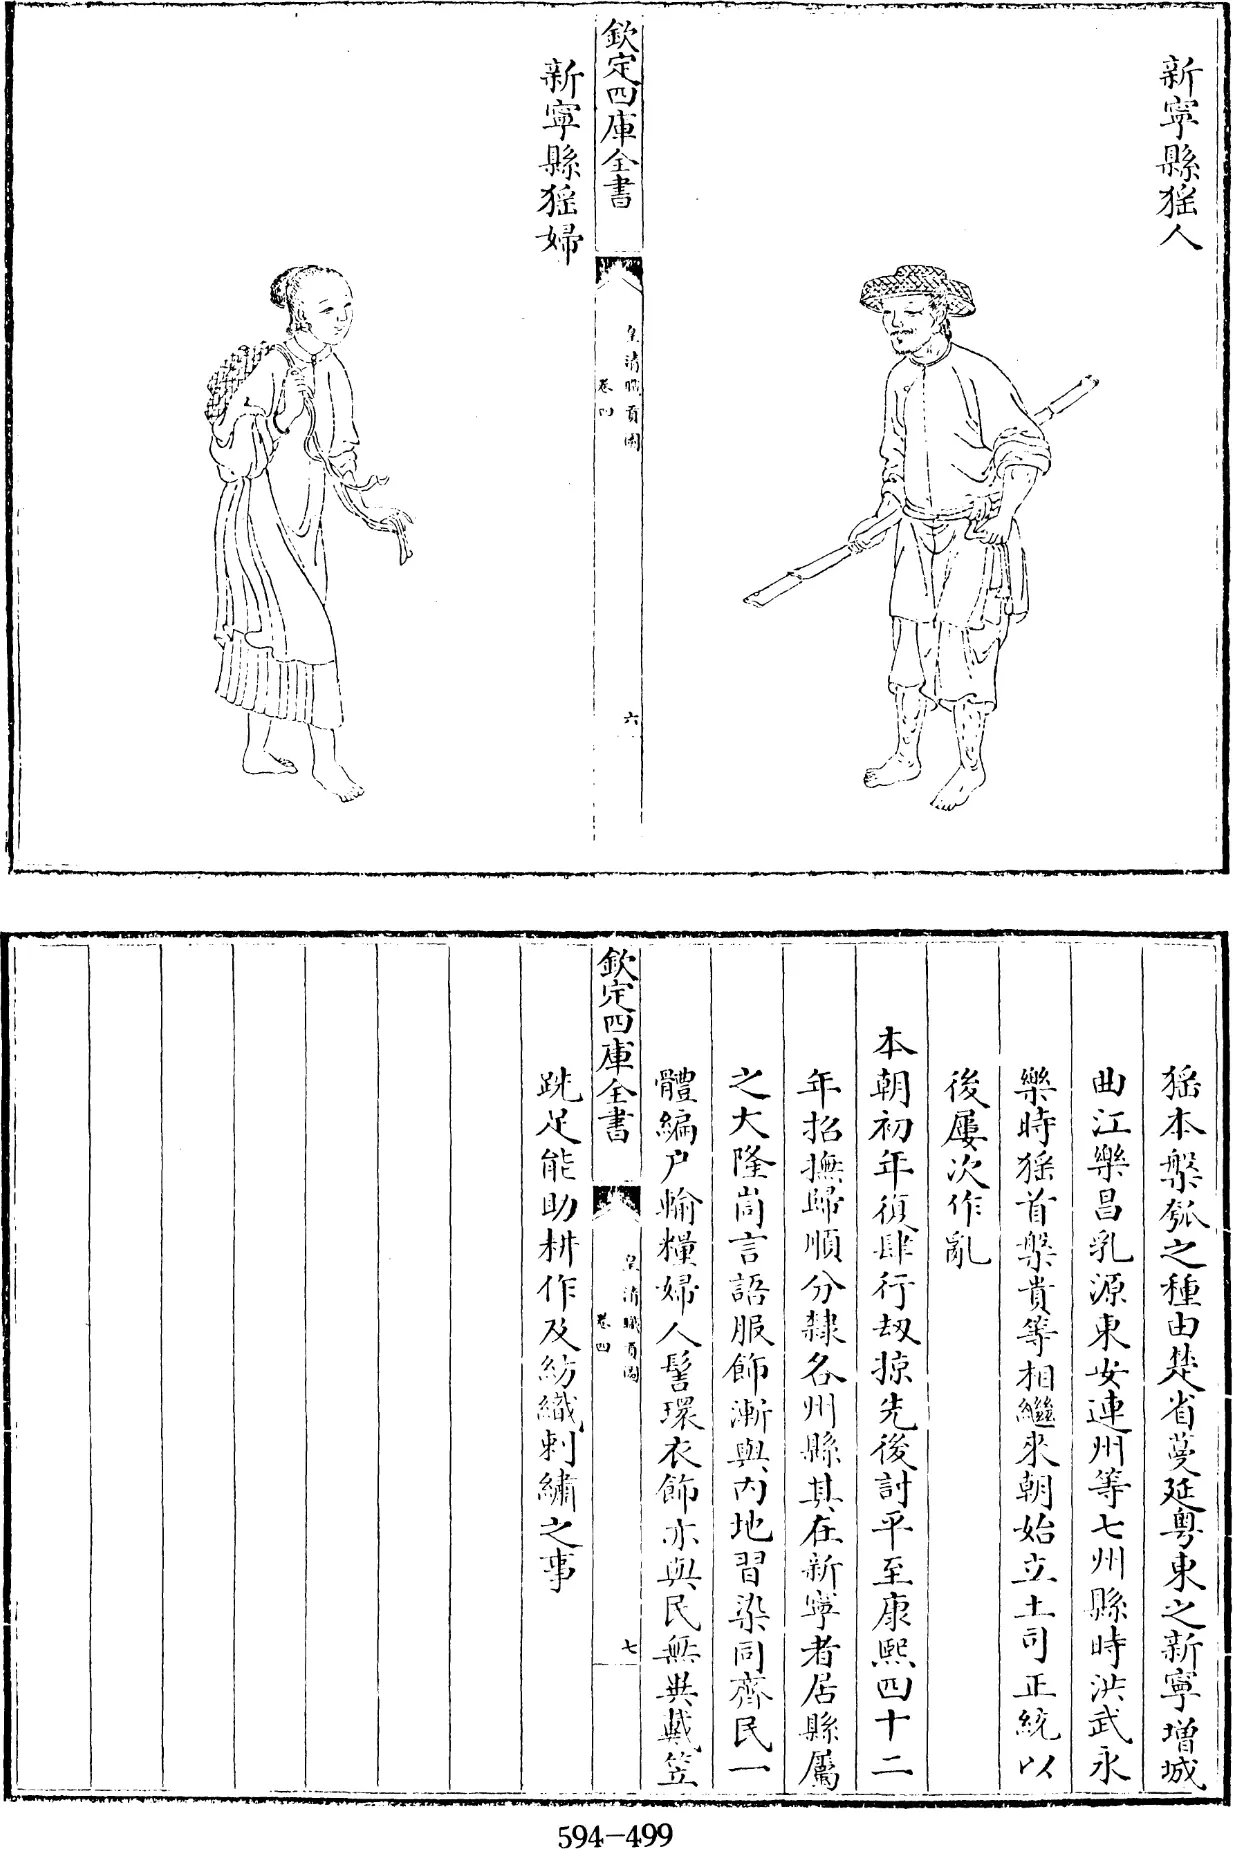 新寧縣猺人
欽定四庫全書
皇清職貢圖
卷四
六
新寧縣猺婦
猺本槃瓠之種由楚省蔓延粵東之新寧增城
曲江樂昌乳源東安連州等七州縣時洪武永
樂時猺首槃貴等相繼來朝始立土司正統以
後屢次作亂
本朝初年復肆行刼掠先後討平至康熙四十二
年招撫歸順分隸各州縣其在新寧者居縣屬
之大隆峝言語服飾漸與內地習染同齊民一
體編户輸糧婦人髻環衣飾亦與民無異戴笠
欽定四庫全書
皇清職貢圖
卷四
七
跣足能助耕作及紡織刺繡之事
594-499